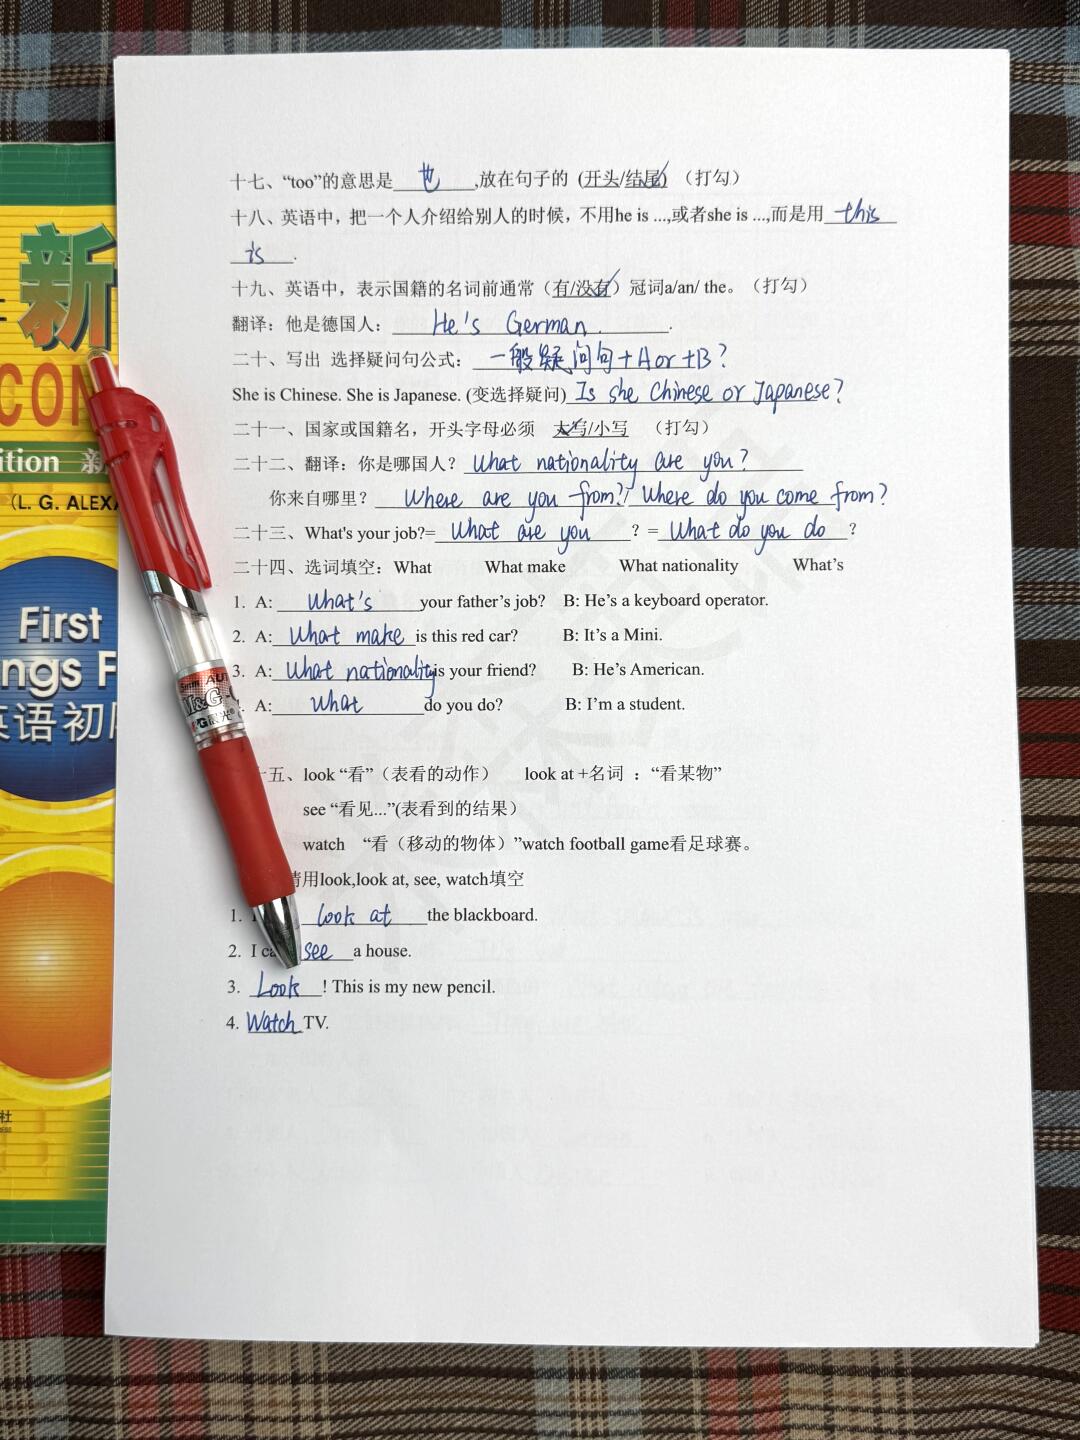 十七、“too”的意思是 也 ,放在句子的 (开头/结尾) （打勾）
十八、英语中，把一个人介绍给别人的时候，不用he is ...,或者she is ...,而是用 this
is .
十九、英语中，表示国籍的名词前通常（有/没有）冠词a/an/ the。（打勾）
翻译：他是德国人： He's German. .
二十、写出 选择疑问句公式： 一般疑问句+A or +B?
She is Chinese. She is Japanese. (变选择疑问) Is she Chinese or Japanese?
二十一、国家或国籍名，开头字母必须 大写/小写 （打勾）
二十二、翻译：你是哪国人？ What nationality are you?
你来自哪里？ Where are you from?/ Where do you come from?
二十三、What's your job?= What are you ? = What do you do ?
二十四、选词填空：What What make What nationality What’s
1. A: What's your father’s job? B: He’s a keyboard operator.
2. A: What make is this red car? B: It’s a Mini.
3. A: What nationality is your friend? B: He’s American.
A: What do you do? B: I’m a student.
十五、look “看”（表看的动作） look at +名词 ：“看某物”
see “看见...”(表看到的结果）
watch “看（移动的物体）”watch football game看足球赛。
请用look,look at, see, watch填空
1. I look at the blackboard.
2. I see a house.
3. Look ! This is my new pencil.
4. Watch TV.
新
CON
ition 新
(L. G. ALEXA
First
ngs F
英语初
社
M&G
晨光